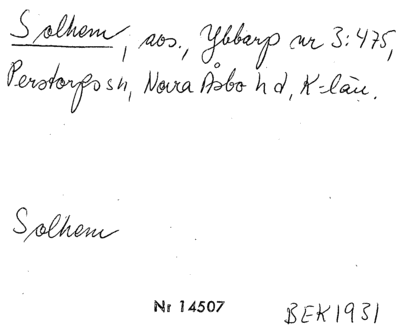 Solhem, aos., Ybbarp nr 3:475,
Perstorps sn, Norra Åsbo hd, K-län.
Solhem
Nr 14507 BEK 1931